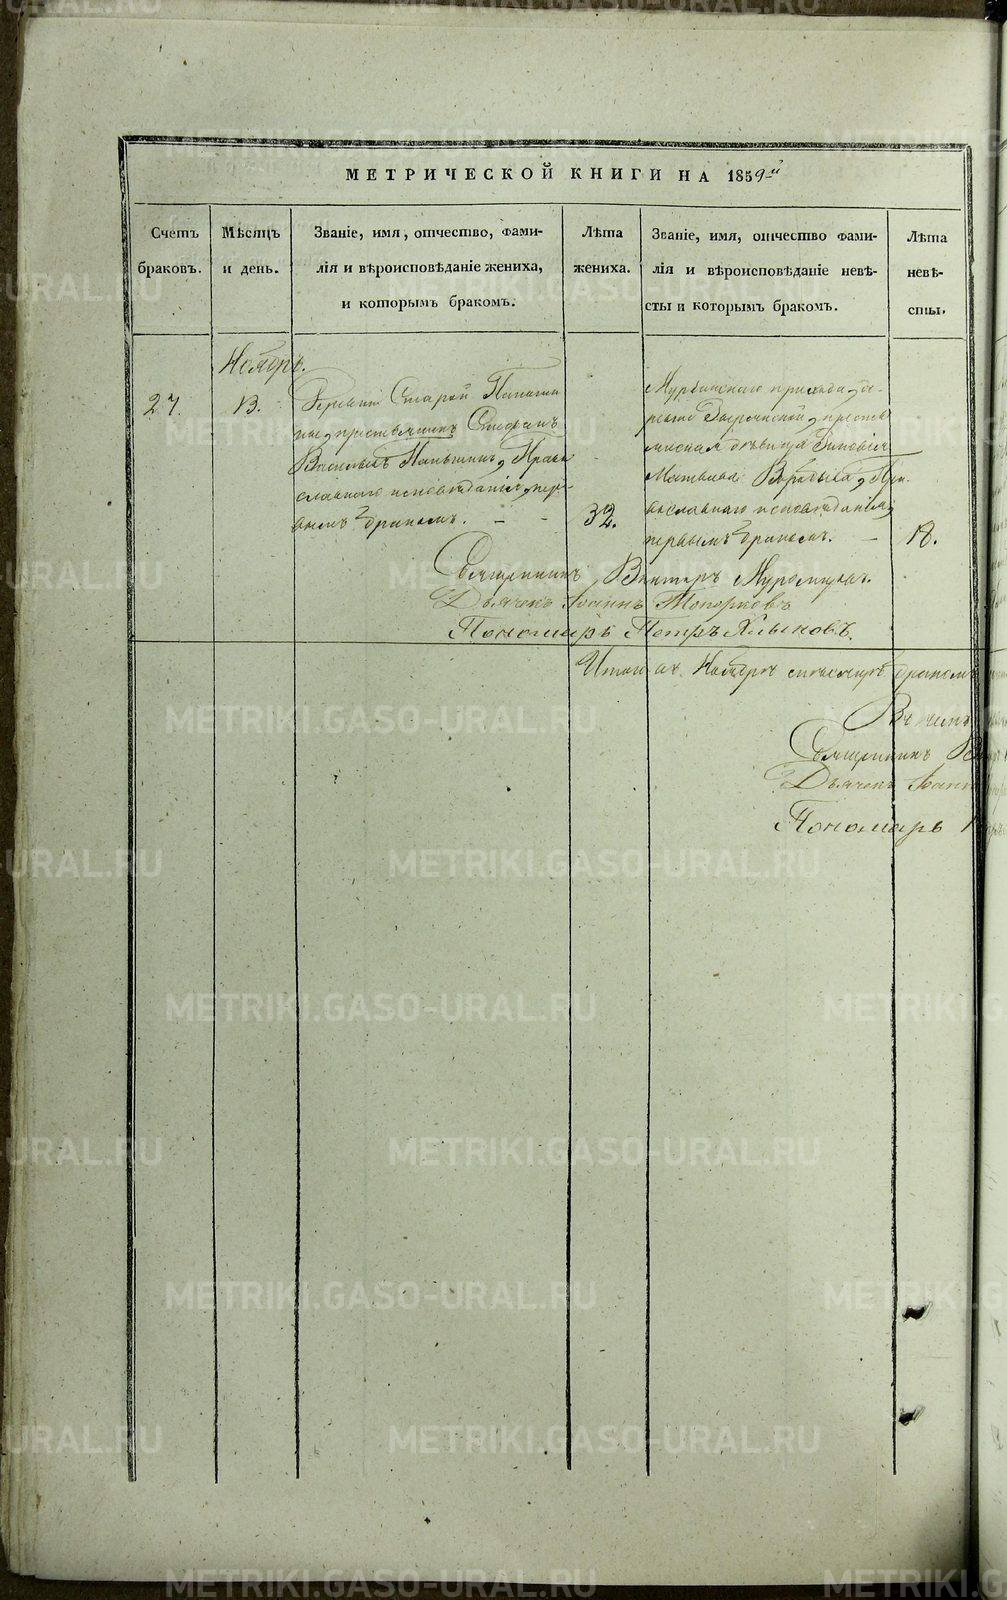 МЕТРИЧЕСКОЙ КНИГИ НА 1859-й
Счетъ браковъ.
Мѣсяцъ и день.
Званіе, имя, отчество, фами-
лія и вѣроисповѣданіе жениха,
и которымъ бракомъ.
Лѣта жениха.
Званіе, имя, отчество фами-
лія и вѣроисповѣданіе невѣ-
сты и которымъ бракомъ.
Лѣта
невѣ-
сты.
Ноябрь.
27.
13.
Деревни Старой
Стефанъ
Васильевъ Паньшинъ, Право
славнаго исповѣданія, пер-
вымъ бракомъ.
32.
прихода, де-
ревни
дѣвица Зиновія
Матвѣева Воробьева, Пра-
вославнаго исповѣданія,
первымъ бракомъ.
18.
Священникъ Викторъ
Дьячекъ Іоаннъ Топорковъ
Пономарь Петръ Хлыновъ.
Итого въ Ноябрѣ мѣсяцѣ бракомъ
Въ чемъ
Священникъ
Дьячекъ Іоаннъ
Пономарь
METRIKI.GASO-URAL.RU